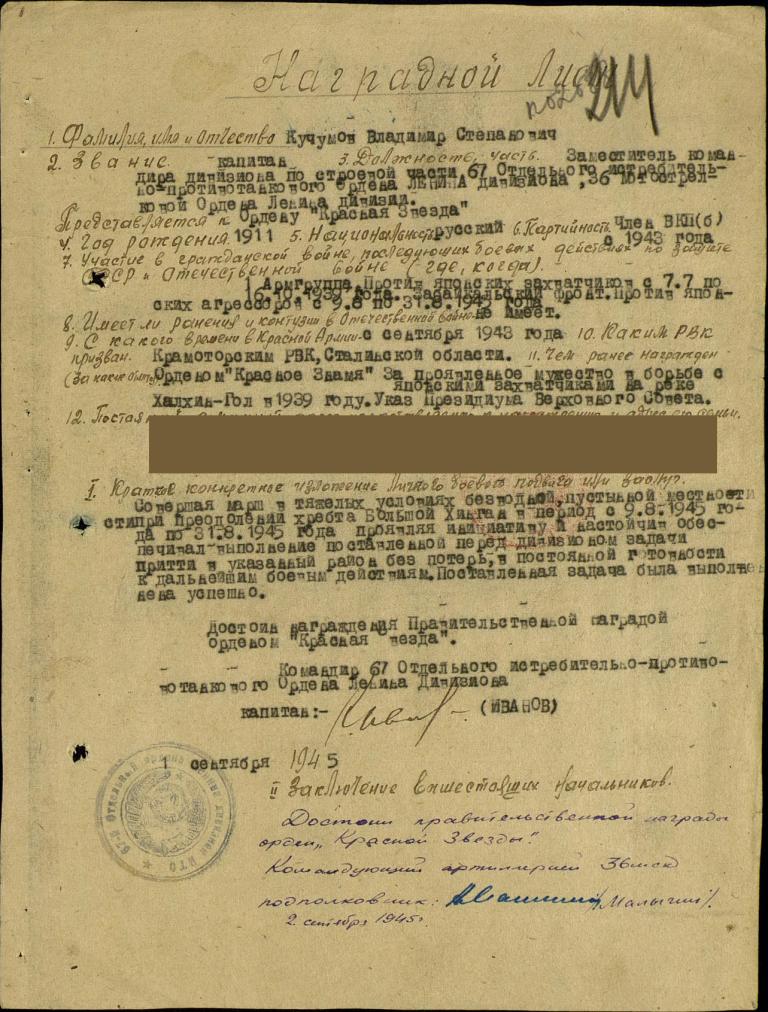 Наградной Лист
214
1. Фамилия, имя и отчество Кучумов Владимир Степанович
2. Звание капитан 3. Должность, часть. Заместитель коман-
дира дивизиона по строевой части 67 Отдельного истребитель-
но-противотанкового Ордена ЛЕНИНА Дивизиона, 36 Мотострел-
ковой Ордена Ленина дивизии.
Представляется к Ордену "Красная Звезда"
4. Год рождения 1911 5. Национальность русский 6. Партийность Член ВКП(б)
с 1943 года
7. Участие в гражданской войне, последующих боевых действиях по защите
СССР и Отечественной войне (где, когда).
Армгруппа Против японских захватчиков с 7.7 по
16.10.1939 года. Забайкальский фронт. Против япон-
ских агрессоров с 9.8 по 31.8.1945 года
8. Имеет ли ранения и контузии в Отечественной войне не имеет.
9. С какого времени в Красной Армии с сентября 1943 года 10. Каким РВК
призван. Краматорским РВК, Сталинской области. 11. Чем ранее награжден
(за какие отличия) Орденом "Красное Знамя" За проявленное мужество в борьбе с
японскими захватчиками на реке
Халхин-Гол в 1939 году. Указ Президиума Верховного Совета.
12.
I. Краткое конкретное изложение личного боевого подвига или заслуг.
Совершая марш в тяжелых условиях безводной, пустынной местности
сти при преодолении хребта Большой Хинган в период с 9.8.1945 го-
да по 31.8.1945 года проявляя инициативу и настойчив обес-
печивал выполнение поставленной перед дивизионом задачи
притти в указанный район без потерь, в постоянной готовности
к дальнейшим боевым действиям. Поставленная задача была выполне
нена успешно.
Достоин награждения Правительственной наградой
орденом "Красная везда".
Командир 67 Отдельного истребительно-противо-
вотанкового Ордена Ленина Дивизиона
капитан:- (ИВАНОВ)
1 сентября 1945
II Заключение вышестоящих начальников.
Достоин правительственной награды
орден „Красной Звезды".
Командующий артиллерией 36мсд
подполковник: /Малыгин/.
2 сентября 1945г.